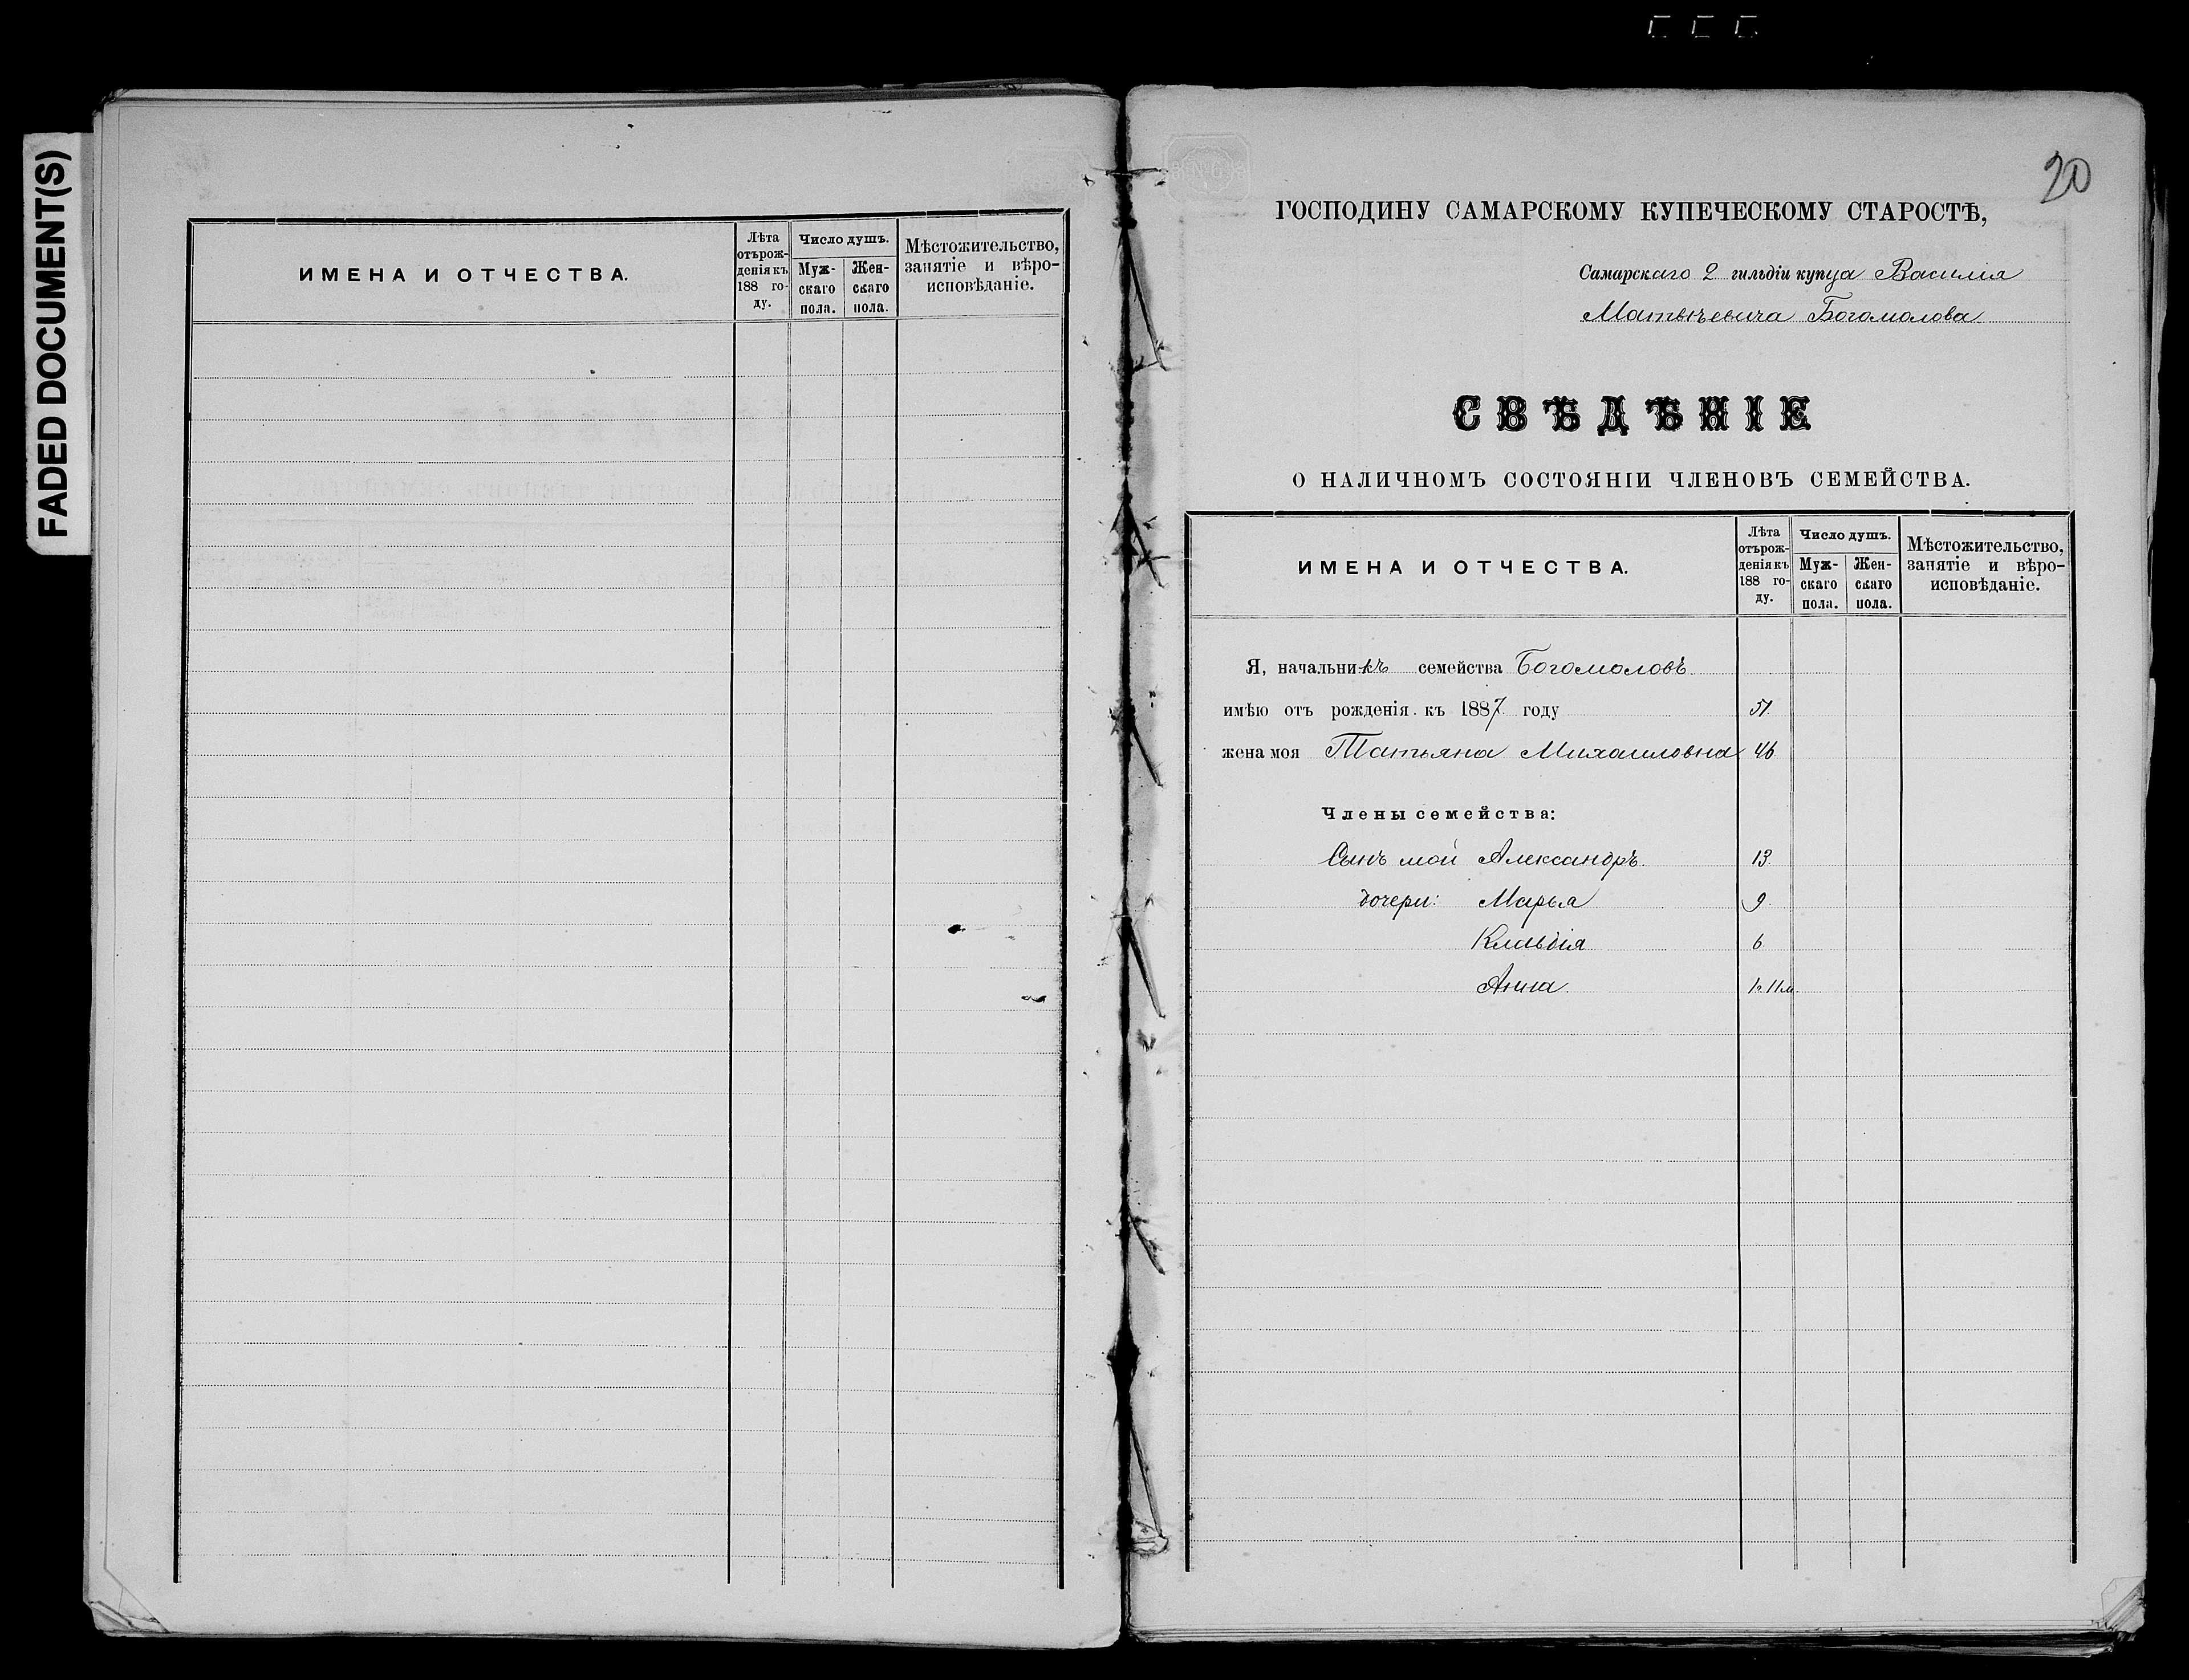 FADED DOCUMENT(S)
ИМЕНА И ОТЧЕСТВА.
Лѣта
отърож-
деніякъ
188 го-
ду.
Число душъ.
Муж-
скаго
пола.
Жен-
скаго
пола.
Мѣстожительство,
занятіе и вѣро-
исповѣданіе.
20
ГОСПОДИНУ САМАРСКОМУ КУПЕЧЕСКОМУ СТАРОСТѢ,
Самарскаго 2 гильдіи купца Василія
Матвѣевича Богомолова
СВѢДѢНІЕ
О НАЛИЧНОМЪ СОСТОЯНІИ ЧЛЕНОВЪ СЕМЕЙСТВА.
ИМЕНА И ОТЧЕСТВА.
Лѣта
отърож-
деніякъ
188 го-
ду.
Число душъ.
Муж-
скаго
пола.
Жен-
скаго
пола.
Мѣстожительство,
занятіе и вѣро-
исповѣданіе.
Я, начальникъ семейства Богомоловъ
имѣю отъ рожденія къ 1887 году 51
жена моя Татьяна Михаиловна 46
Члены семейства:
Сынъ мой Александръ. 13
дочери: Марья 9
Клавдія 6
Анна 1г. 11м.